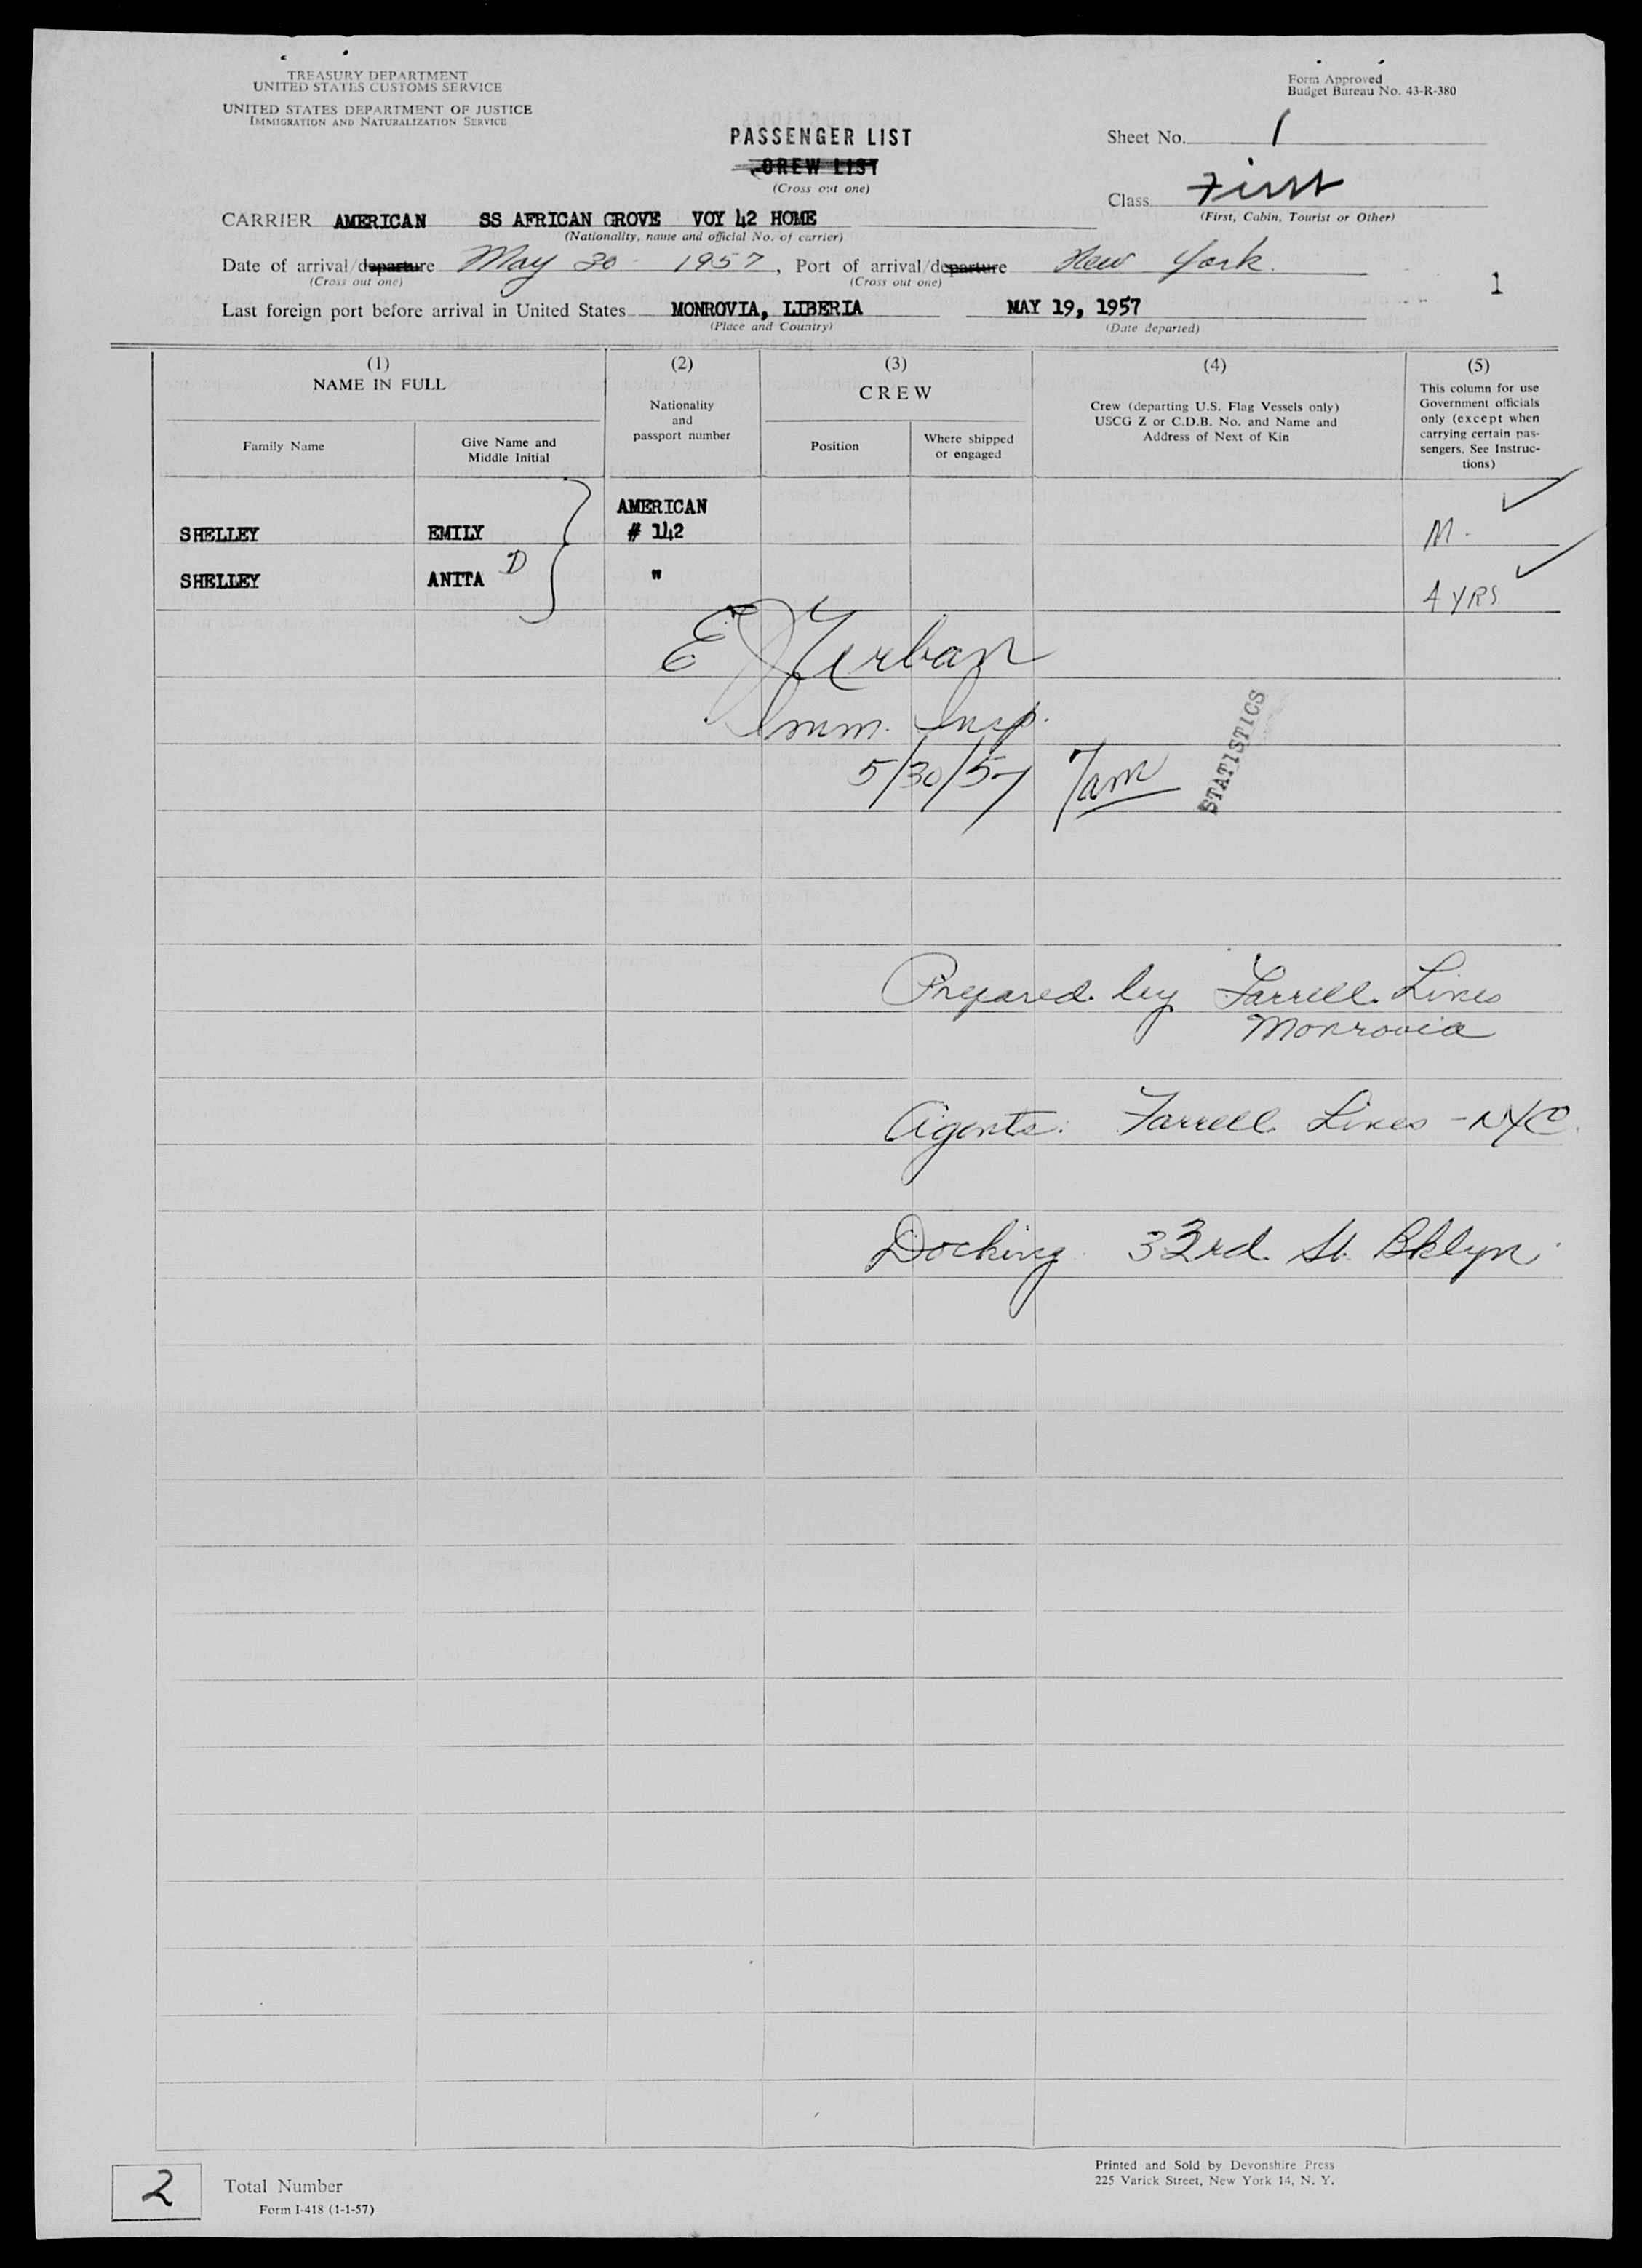 TREASURY DEPARTMENT
UNITED STATES CUSTOMS SERVICE
UNITED STATES DEPARTMENT OF JUSTICE
IMMIGRATION AND NATURALIZATION SERVICE
Form Approved
Budget Bureau No. 43-R-380
PASSENGER LIST
CREW LIST
(Cross out one)
Sheet No. 1
Class First
(First, Cabin, Tourist or Other)
CARRIER AMERICAN SS AFRICAN GROVE VOY 42 HOME
(Nationality, name and official No. of carrier)
Date of arrival/departure May 30 - 1957, Port of arrival/departure New York.
(Cross out one) (Cross out one)
1
Last foreign port before arrival in United States MONROVIA, LIBERIA MAY 19, 1957
(Place and Country) (Date departed)
(1)
NAME IN FULL
Family Name
Give Name and
Middle Initial
(2)
Nationality
and
passport number
(3)
CREW
Position
Where shipped
or engaged
(4)
Crew (departing U.S. Flag Vessels only)
USCG Z or C.D.B. No. and Name and
Address of Next of Kin
(5)
This column for use
Government officials
only (except when
carrying certain pas-
sengers. See Instruc-
tions)
AMERICAN
SHELLEY EMILY # 142 M -
SHELLEY ANITA D " 4 YRS.
E J Urban
Imm. Insp.
5/30/57 7am
STATISTICS
Prepared by Farrell Lines
Monrovia
Agents: Farrell Lines - NYC.
Docking 33rd St. Bklyn.
2
Total Number
Form I-418 (1-1-57)
Printed and Sold by Devonshire Press
225 Varick Street, New York 14, N. Y.